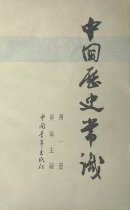 中国歷史常識
第一册
吴晗主编
中国青年出版社